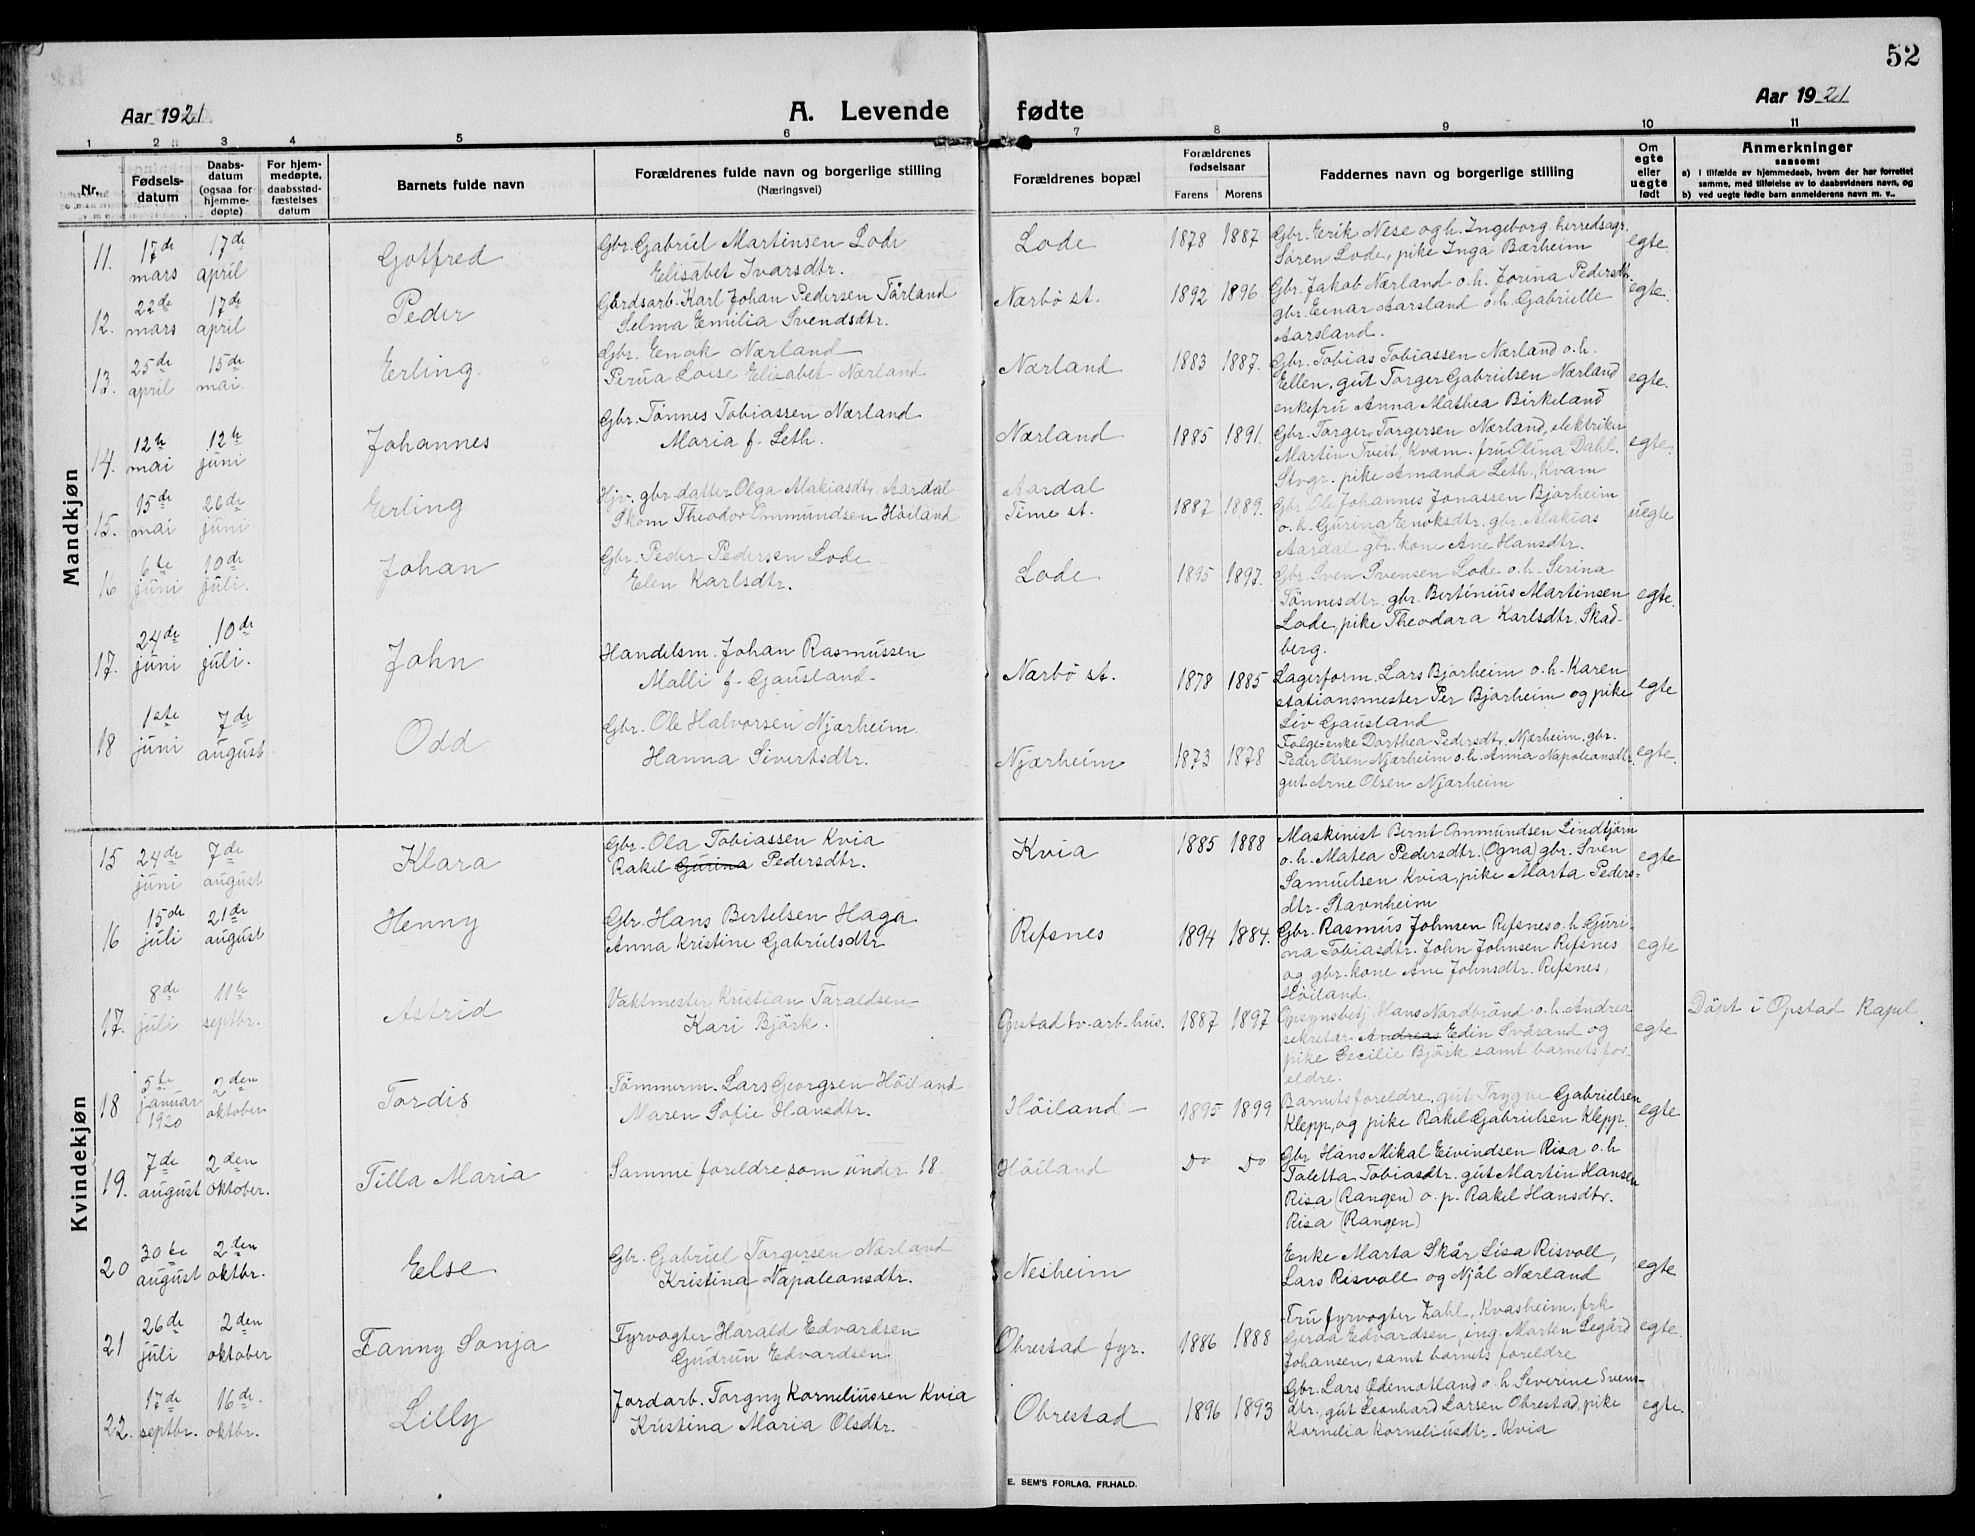 52
Aar 1921
A. Levende fødte
Aar 1921
1 2 3 4 5 6 7 8 9 10 11
Nr.
Fødsels-
datum
Daabs-
datum
(ogsaa for
hjemme-
døpte)
For hjem-
medøpte,
daabsstad-
fæstelses
datum
Barnets fulde navn
Forældrenes fulde navn og borgerlige stilling
(Næringsvei)
Forældrenes bopæl
Forældrenes
fødselsaar
Farens Morens
Faddernes navn og borgerlige stilling
Om
egte
eller
uegte
født
Anmerkninger
saasom:
a) i tilfælde av hjemmedaab, hvem der har forrettet
samme, med tilføielse av to daabsvidners navn, og
b) ved uegte fødte barn anmelderens navn m. v..
Mandkjøn
11. 17de mars 17de april Gotfred
Gbr. Gabriel Martinsen Lode
Elisabet Ivarsdtr.
Lode 1878 1887
Gbr. Erik Nese og h. Ingeborg, herredsagr.
Sören Lode, pike Inga Bærheim
egte
12. 22de mars 17de april Peder
Gårdsarb. Karl Johan Pedersen Tårland
Selma Emilia Svendsdtr.
Nærbö st. 1892 1896.
Gbr. Jakob Nærland o. h. Jorina Pedersdtr.
gbr. Einar Aarsland o. h. Gabrielle
Aarsland.
egte.
13. 25de april 15de mai. Erling.
Gbr. Enok Nærland
Perua Loise Elisabet Nærland
Nærland 1883 1887.
Gbr. Tobias Tobiassen Nærland o. h.
Ellen, gut Torger Gabrielsen Nærland
enkefru Anna Mathea Birkeland
egte.
14. 12te mai 12te juni Johannes
Gbr. Tönnes Tobiassen Nærland
Maria f. Leth.
Nærland 1885 1891.
Gbr. Torger Torgersen Nærland, elektriker
Martin Tveit, Kvam. fru Elina Dahl.
Stvgr. pike Amanda Leth, Kvam
egte.
15. 15de mai 26de juni Erling
Hjv. gbr. datter Olga Malakiasdtr. Aardal
Skom Theodor Ommundsen Höiland
Aardal
Time st. 1887 1889.
Gbr. Ole Johannes Jonassen Bjorheim
o. h. Gurina Enoksdtr. gbr. Malakias
Aardal gbr. kone Ane Hansdtr.
uegte
16 6te juni 10de juli. Johan
Gbr. Peder Pedersen Lode
Elen Karlsdtr.
Lode 1895 1897.
Gbr. Sven Svensen Lode o. h. Serina
Tönnesdtr. gbr. Bertinius Martinsen
Lode, pike Theodara Karlsdtr. Skad-
berg.
egte.
17. 24de juni 10de juli. John
Handelsm. Johan Rasmussen
Malli f. Gausland
Nærbö st. 1878 1885
Lagerform. Lars Bjorheim o. h. Karen
stationsmester Per Bjorheim og pike
Liv Gausland
egte
18 1ste juni 7de august Odd
Gbr. Ole Halvorsen Njærheim
Hanna Sivertsdtr.
Njærheim 1873 1878
Folge-enke Dorthea Pedersdtr. Njærheim, gbr.
Peder Olsen Njærheim o. h. Anna Napoleonsdtr.
gut Arne Olsen Njærheim
egte.
Kvindekjøn
15 24de juni 7de august Klara
Gbr. Ola Tobiassen Kvia
Rakel Gurina Pedersdtr.
Kvia 1885 1888
Maskinist Bernt Ommundsen Lindtjörn
o. h. Matea Pedersdtr. (Ogna) gbr. Sven
Samuelsen Kvia, pike Marta Peders-
dtr. Stavnheim
egte
16 15de juli 21de august Henny
Gbr. Hans Bertelsen Haga
Anna Kristine Gabrielsdtr
Refsnes 1894 1884.
Gbr. Rasmus Johnsen Refsnes o. h. Guri-
na Tobiasdtr. John Johnsen Refsnes
og gbr. kone Ane Johnsdtr. Refsnes,
Höiland.
egte
17. 8de juli 11te septbr. Astrid
Vaktmester Kristian Taraldsen
Kari Björk.
Opstad tv. arb. hus. 1887 1897
Opsynsbetj. Hans Nordbränd o. h. Andrea
sekretær Andreas Edin Svåsand og
pike Cecilie Björk samt barnets for-
eldre.
egte
Döpt i Opstad Kapel.
18 5te januar 1920 2den oktober Tordis
Tömmerm. Lars Georgsen Höiland
Maren Sofie Hansdtr.
Höiland 1895 1899
Barnets foreldre, gut Trygve Gabrielsen
Klepp, og pike Rakel Gabrielsen Klepp.
egte
19. 7de august 2den oktober. Tilla Maria
Samme foreldre som under 18.
Höiland Do Do
Gbr Hans Mikal Eivindsen Risa o. h
Taletta Tobiasdtr. gut Martin Hansen
Risa (Rangen) o. p. Rakel Hansdtr.
Risa (Rangen)
20 30te august 2den oktbr. Else
Gbr. Gabriel Torgersen Nærland
Kristina Napoleonsdtr.
Nesheim
Enke Marta Skår Lisa Risvoll,
Lars Risvoll og Njål Nærland
egte
21 26de juli 2den oktober Fanny Sonja
Fyrvogter Harald Edvardsen
Gudrun Edvardsen
Obrestad fyr. 1886 1888
Fru fyrvogter Zahl, Kvasheim, frk
Gerda Edvardsen, ing. Marten Segård
Johansen, samt barnets foreldre
egte.
22. 17de septbr. 16de oktbr. Lilly
Jordarb. Torgny Korneliussen Kvia
Kristina Maria Olsdtr.
Obrestad 1896 1893
Gbr. Lars Ødemotland o. h. Severine Svens-
dtr., gut Leonhard Larsen Obrestad, pike
Kornelia Korneliusdtr. Kvia
egte.
E. SEM'S FORLAG, FR.HALD.